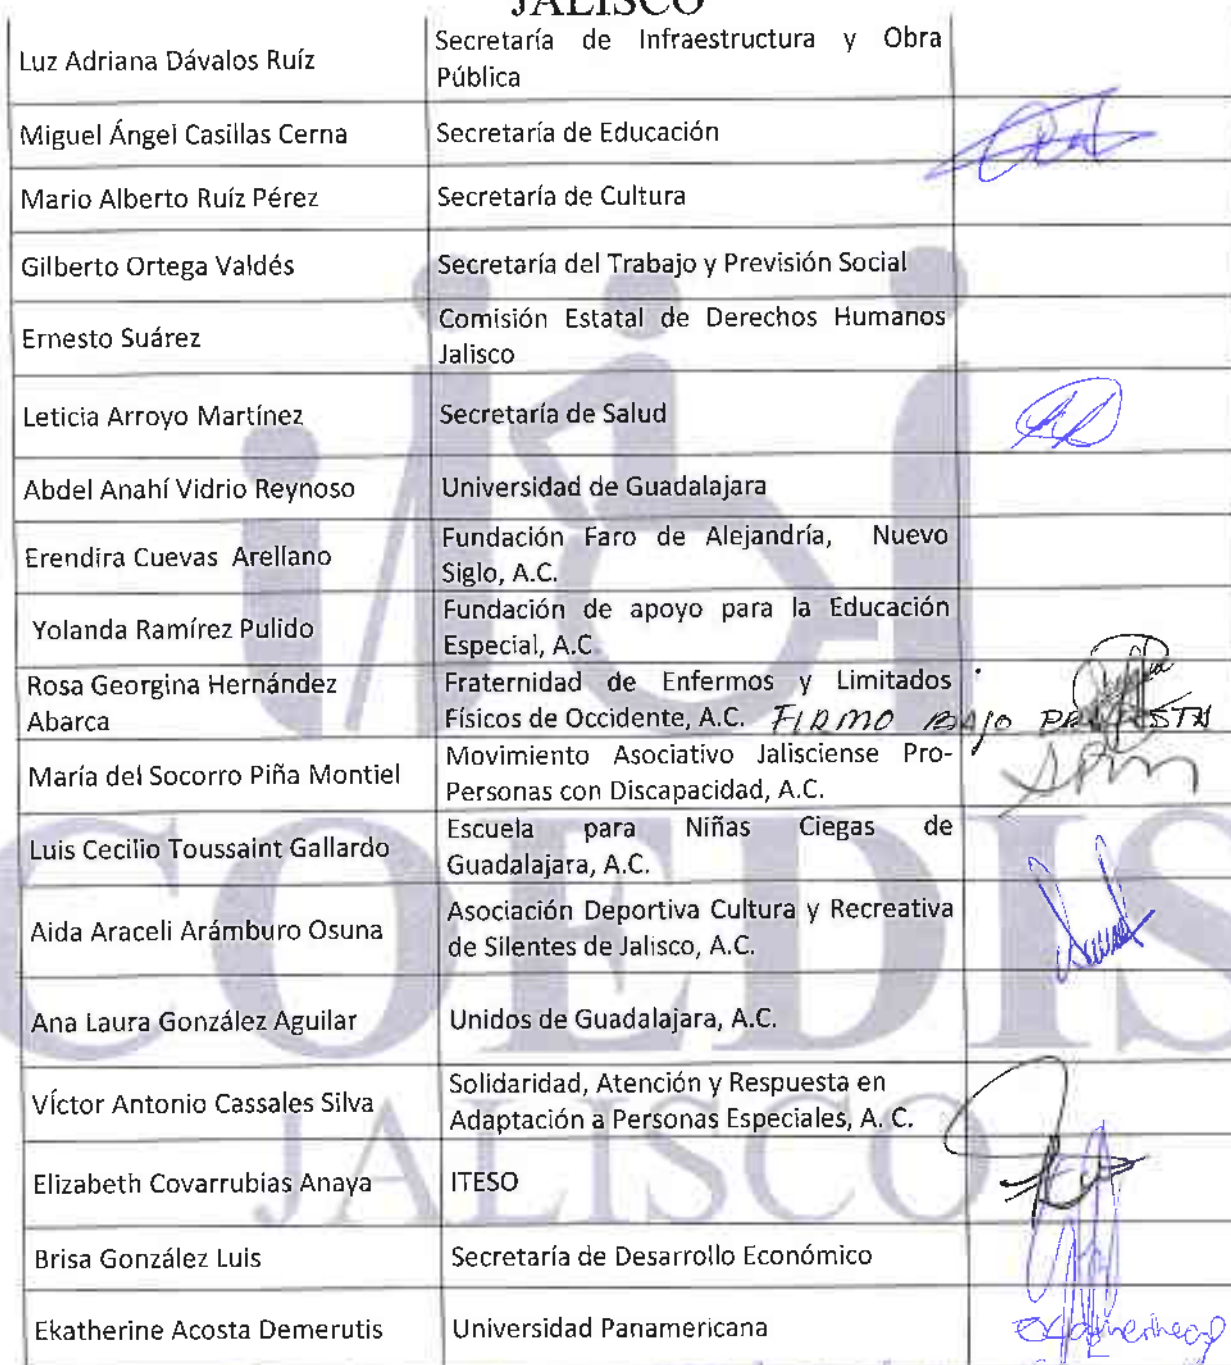 JALISCO
Luz Adriana Dávalos Ruíz
Secretaría de Infraestructura y Obra
Pública
Miguel Ángel Casillas Cerna
Secretaría de Educación
Mario Alberto Ruíz Pérez
Secretaría de Cultura
Gilberto Ortega Valdés
Secretaría del Trabajo y Previsión Social
Ernesto Suárez
Comisión Estatal de Derechos Humanos
Jalisco
Leticia Arroyo Martínez
Secretaría de Salud
Abdel Anahí Vidrio Reynoso
Universidad de Guadalajara
Erendira Cuevas Arellano
Fundación Faro de Alejandría, Nuevo
Siglo, A.C.
Yolanda Ramírez Pulido
Fundación de apoyo para la Educación
Especial, A.C
Rosa Georgina Hernández
Abarca
Fraternidad de Enfermos y Limitados
Físicos de Occidente, A.C. FIRMO BAJO PROTESTA
María del Socorro Piña Montiel
Movimiento Asociativo Jalisciense Pro-
Personas con Discapacidad, A.C.
Luis Cecilio Toussaint Gallardo
Escuela para Niñas Ciegas de
Guadalajara, A.C.
Aida Araceli Arámburo Osuna
Asociación Deportiva Cultura y Recreativa
de Silentes de Jalisco, A.C.
Ana Laura González Aguilar
Unidos de Guadalajara, A.C.
Víctor Antonio Cassales Silva
Solidaridad, Atención y Respuesta en
Adaptación a Personas Especiales, A. C.
Elizabeth Covarrubias Anaya
ITESO
Brisa González Luis
Secretaría de Desarrollo Económico
Ekatherine Acosta Demerutis
Universidad Panamericana
COEDIS
JALISCO